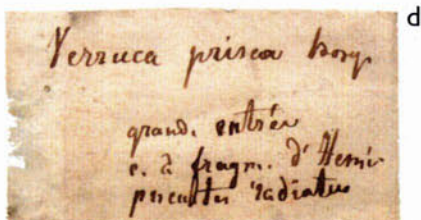 Verruca prisca Bosq.
d
grand. entrée
c. à fragm. d'Hemi-
pneustes radiatus